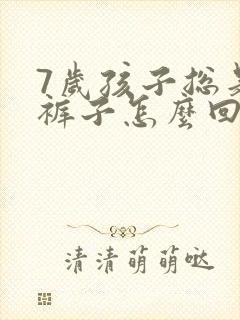 7歲孩子總是
褲子怎麼回
清清萌萌噠